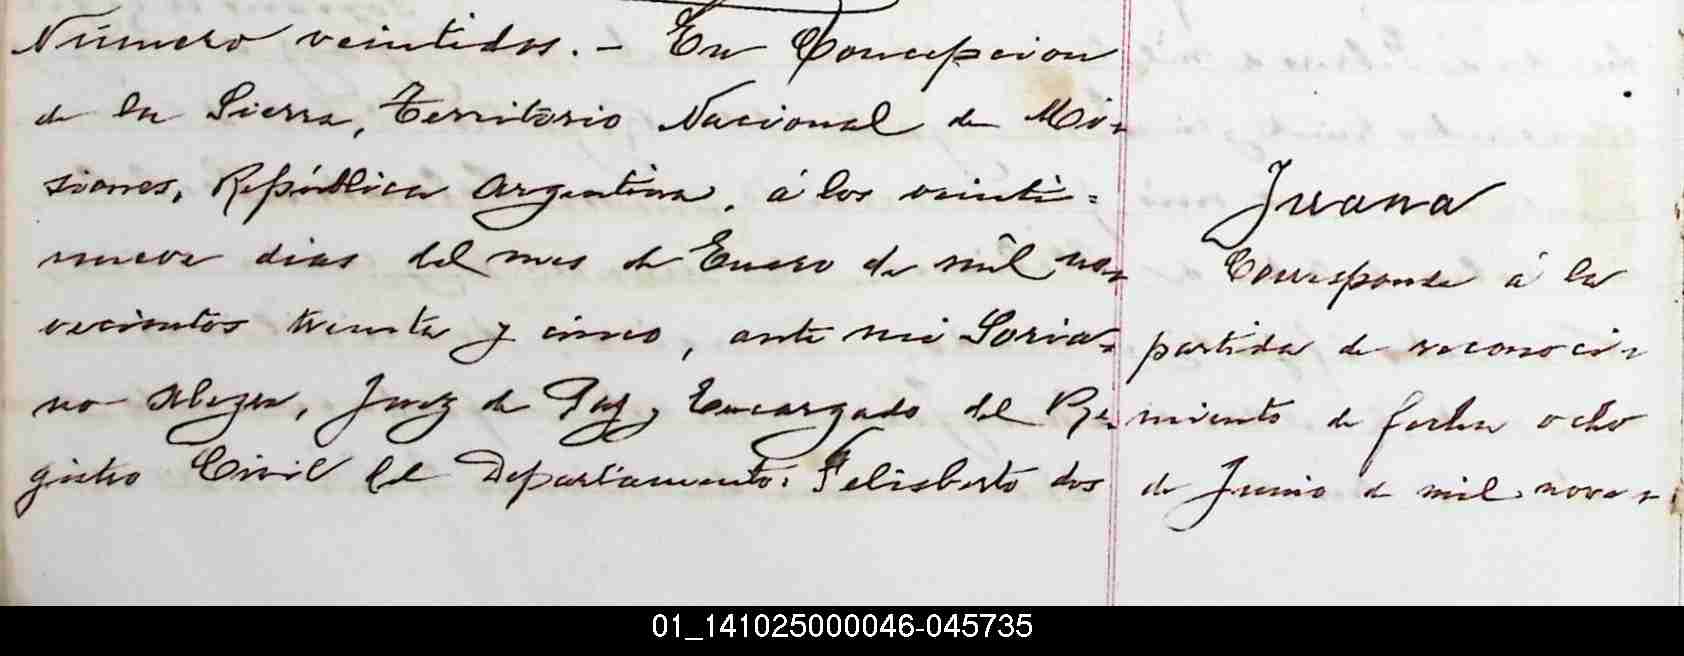 Número veintidos. - En Concepcion
de la Sierra, Territorio Nacional de Mi-
siones, República Argentina, á los veinti=
nueve dias del mes de Enero de mil no-
vecientos treinta y cinco, ante mi Soria-
no Juez de Paz, Encargado del Re-
gistro Civil del Departamento: Felisberto dos
Juana
Corresponde á la
partida de reconoci-
miento de fecha ocho
de Junio de mil nove-
01_141025000046-045735